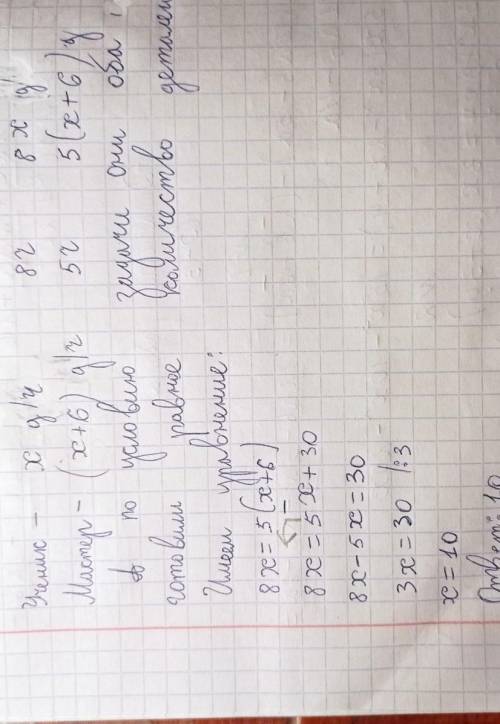 Ученик - x д/ч 8ч 8x д
Мастер - (x+6) д/ч 5ч 5(x+6) д
А по условию задачи они оба
готовили равное количество деталей
Имеем уравнение:
8x=5(x+6)
8x=5x+30
8x-5x=30
3x=30 /:3
x=10
Ответ: 10